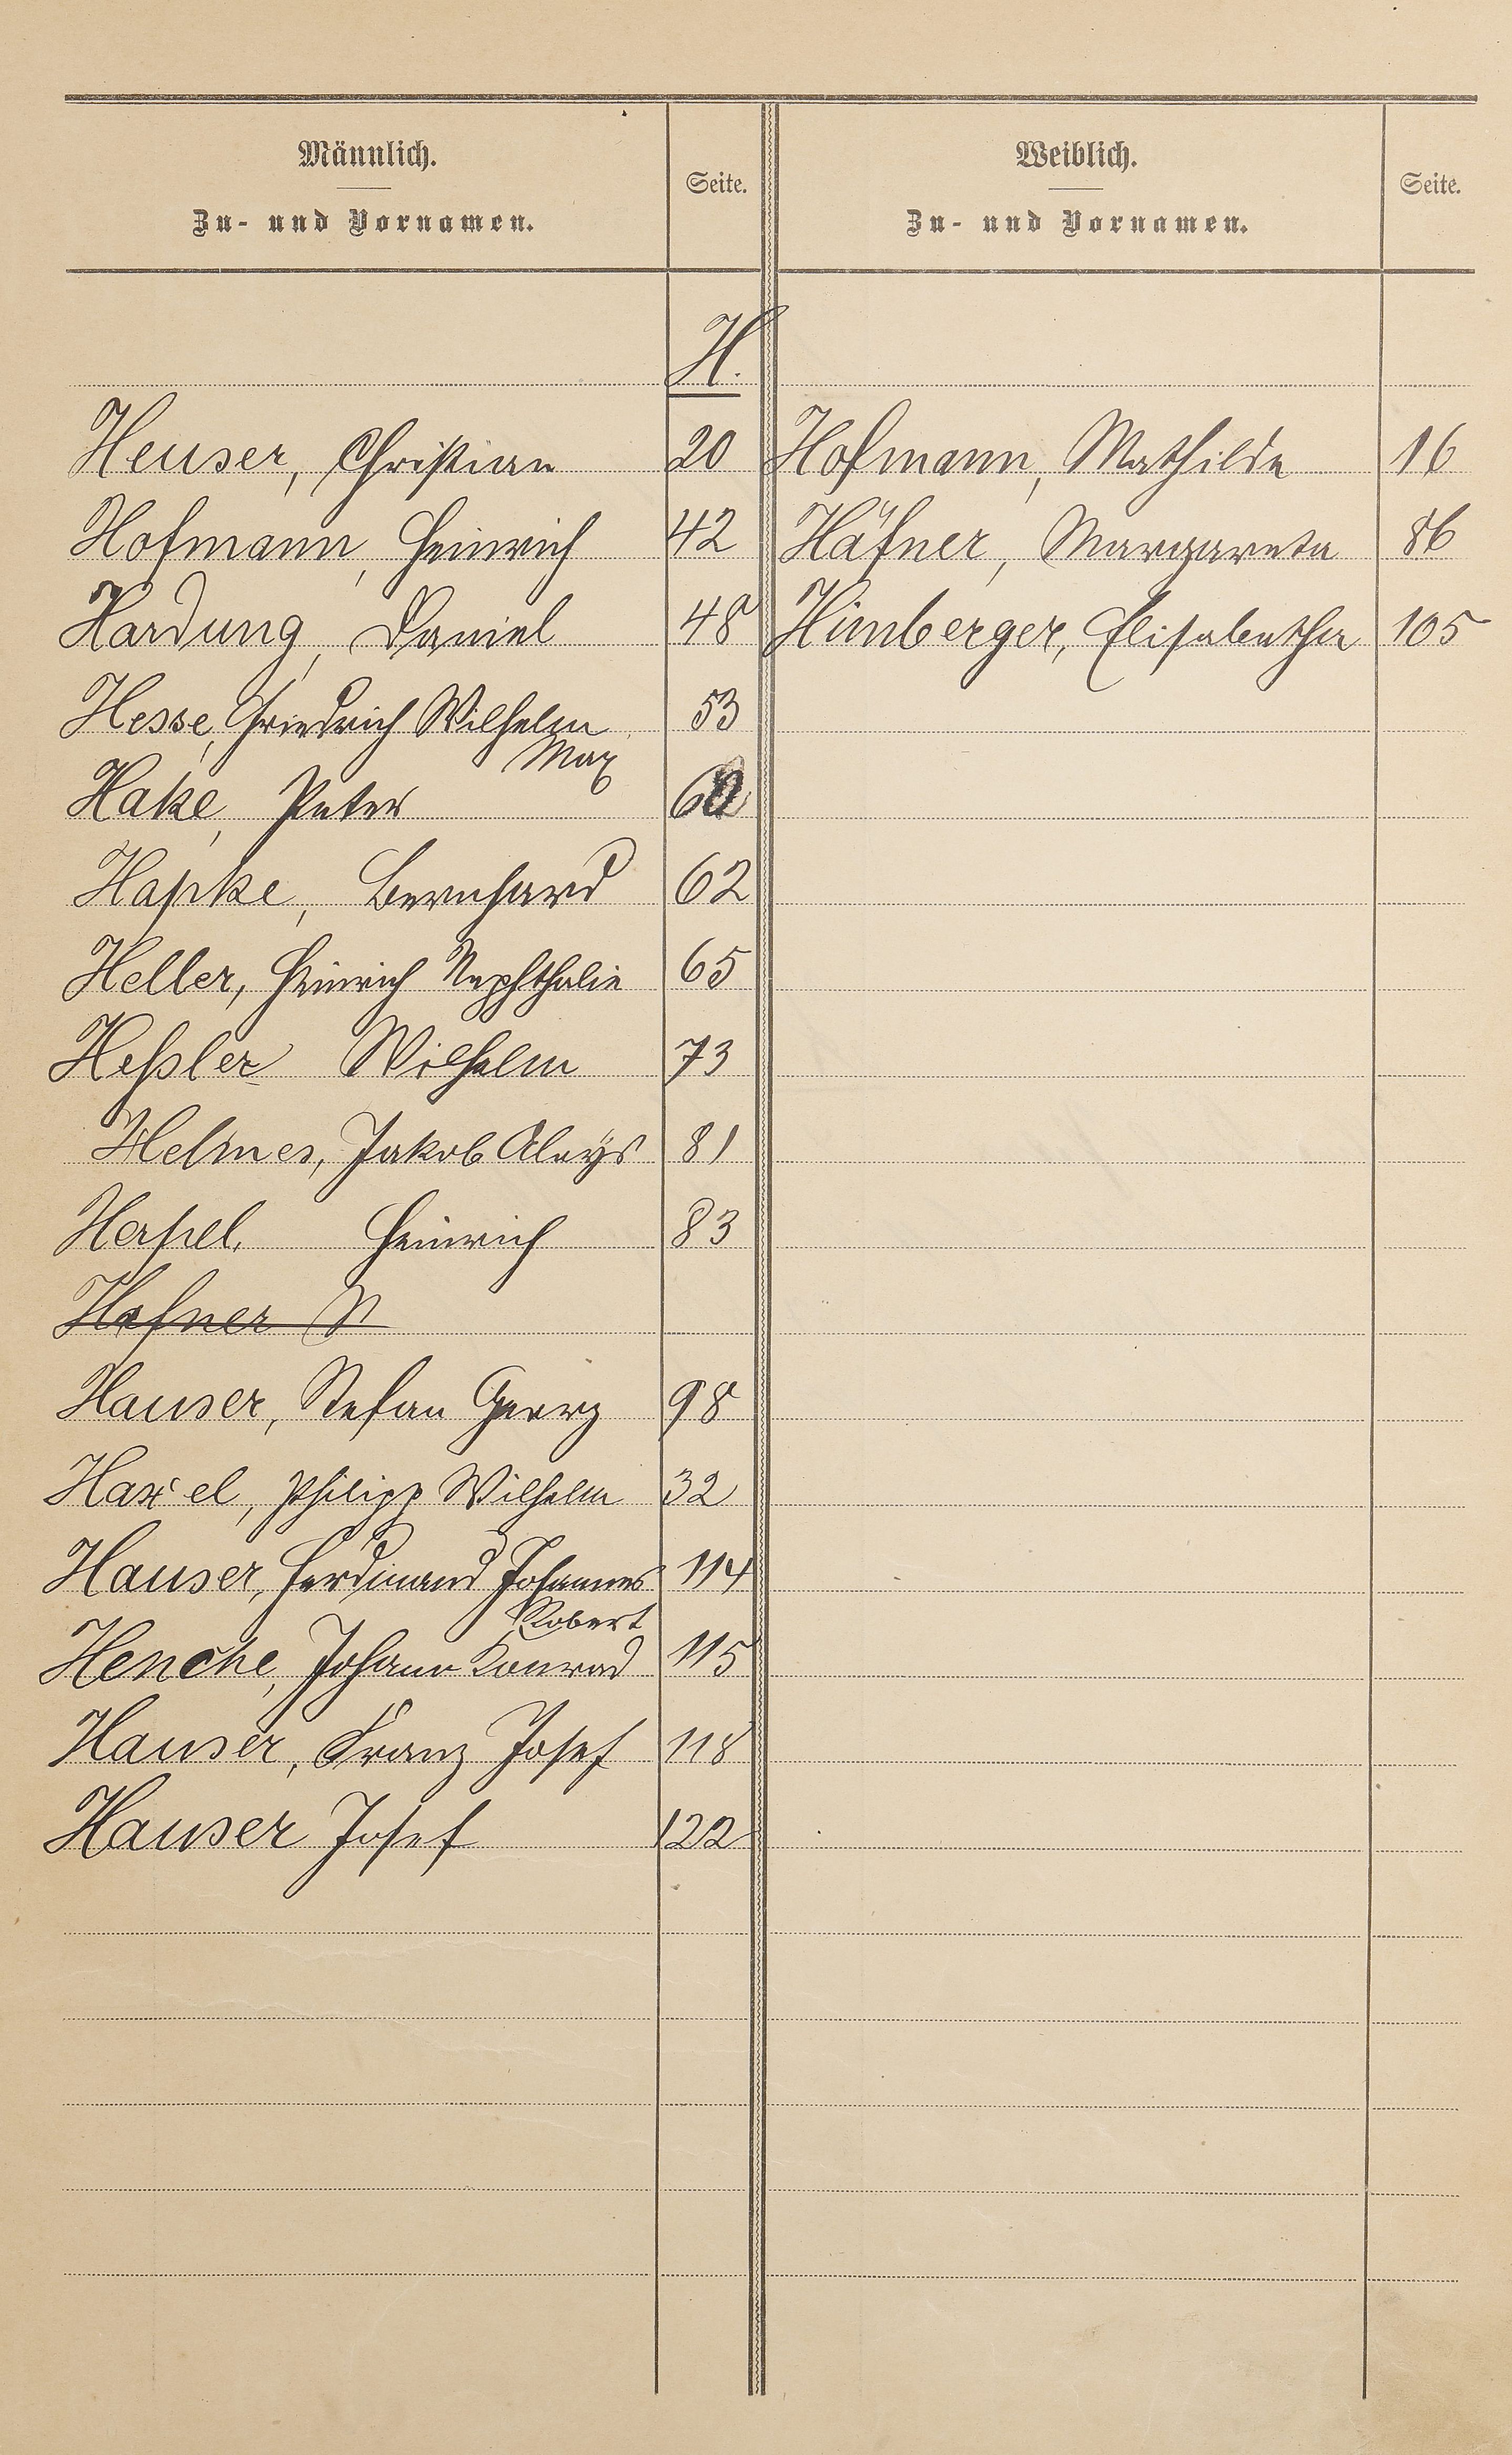 Männlich.
Zu- und Vornamen.
Seite.
Weiblich.
Zu- und Vornamen.
Seite.
H.
Heuser, Christian 20 Hofmann, Mathilde 16
Hofmann, Heinrich 42 Häfner, Margareta 86
Hardung, Daniel 48 Himberger, Elisabetha 105
Hesse, Friedrich Wilhelm 53
Max
Hake, Peter 60
Hapke, Bernhard 62
Heller, Heinrich Naphthalie 65
Heßler Wilhelm 73
Helmes, Jakob Aloys 81
Hapel, Heinrich 83
Hafner M
Hauser, Stefan Georg 98
Haxel, Philipp Wilhelm 32
Hauser, Ferdinand Johannes 114
Robert
Henche, Johann Konrad 115
Hauser, Franz Josef 118
Hauser Josef 122